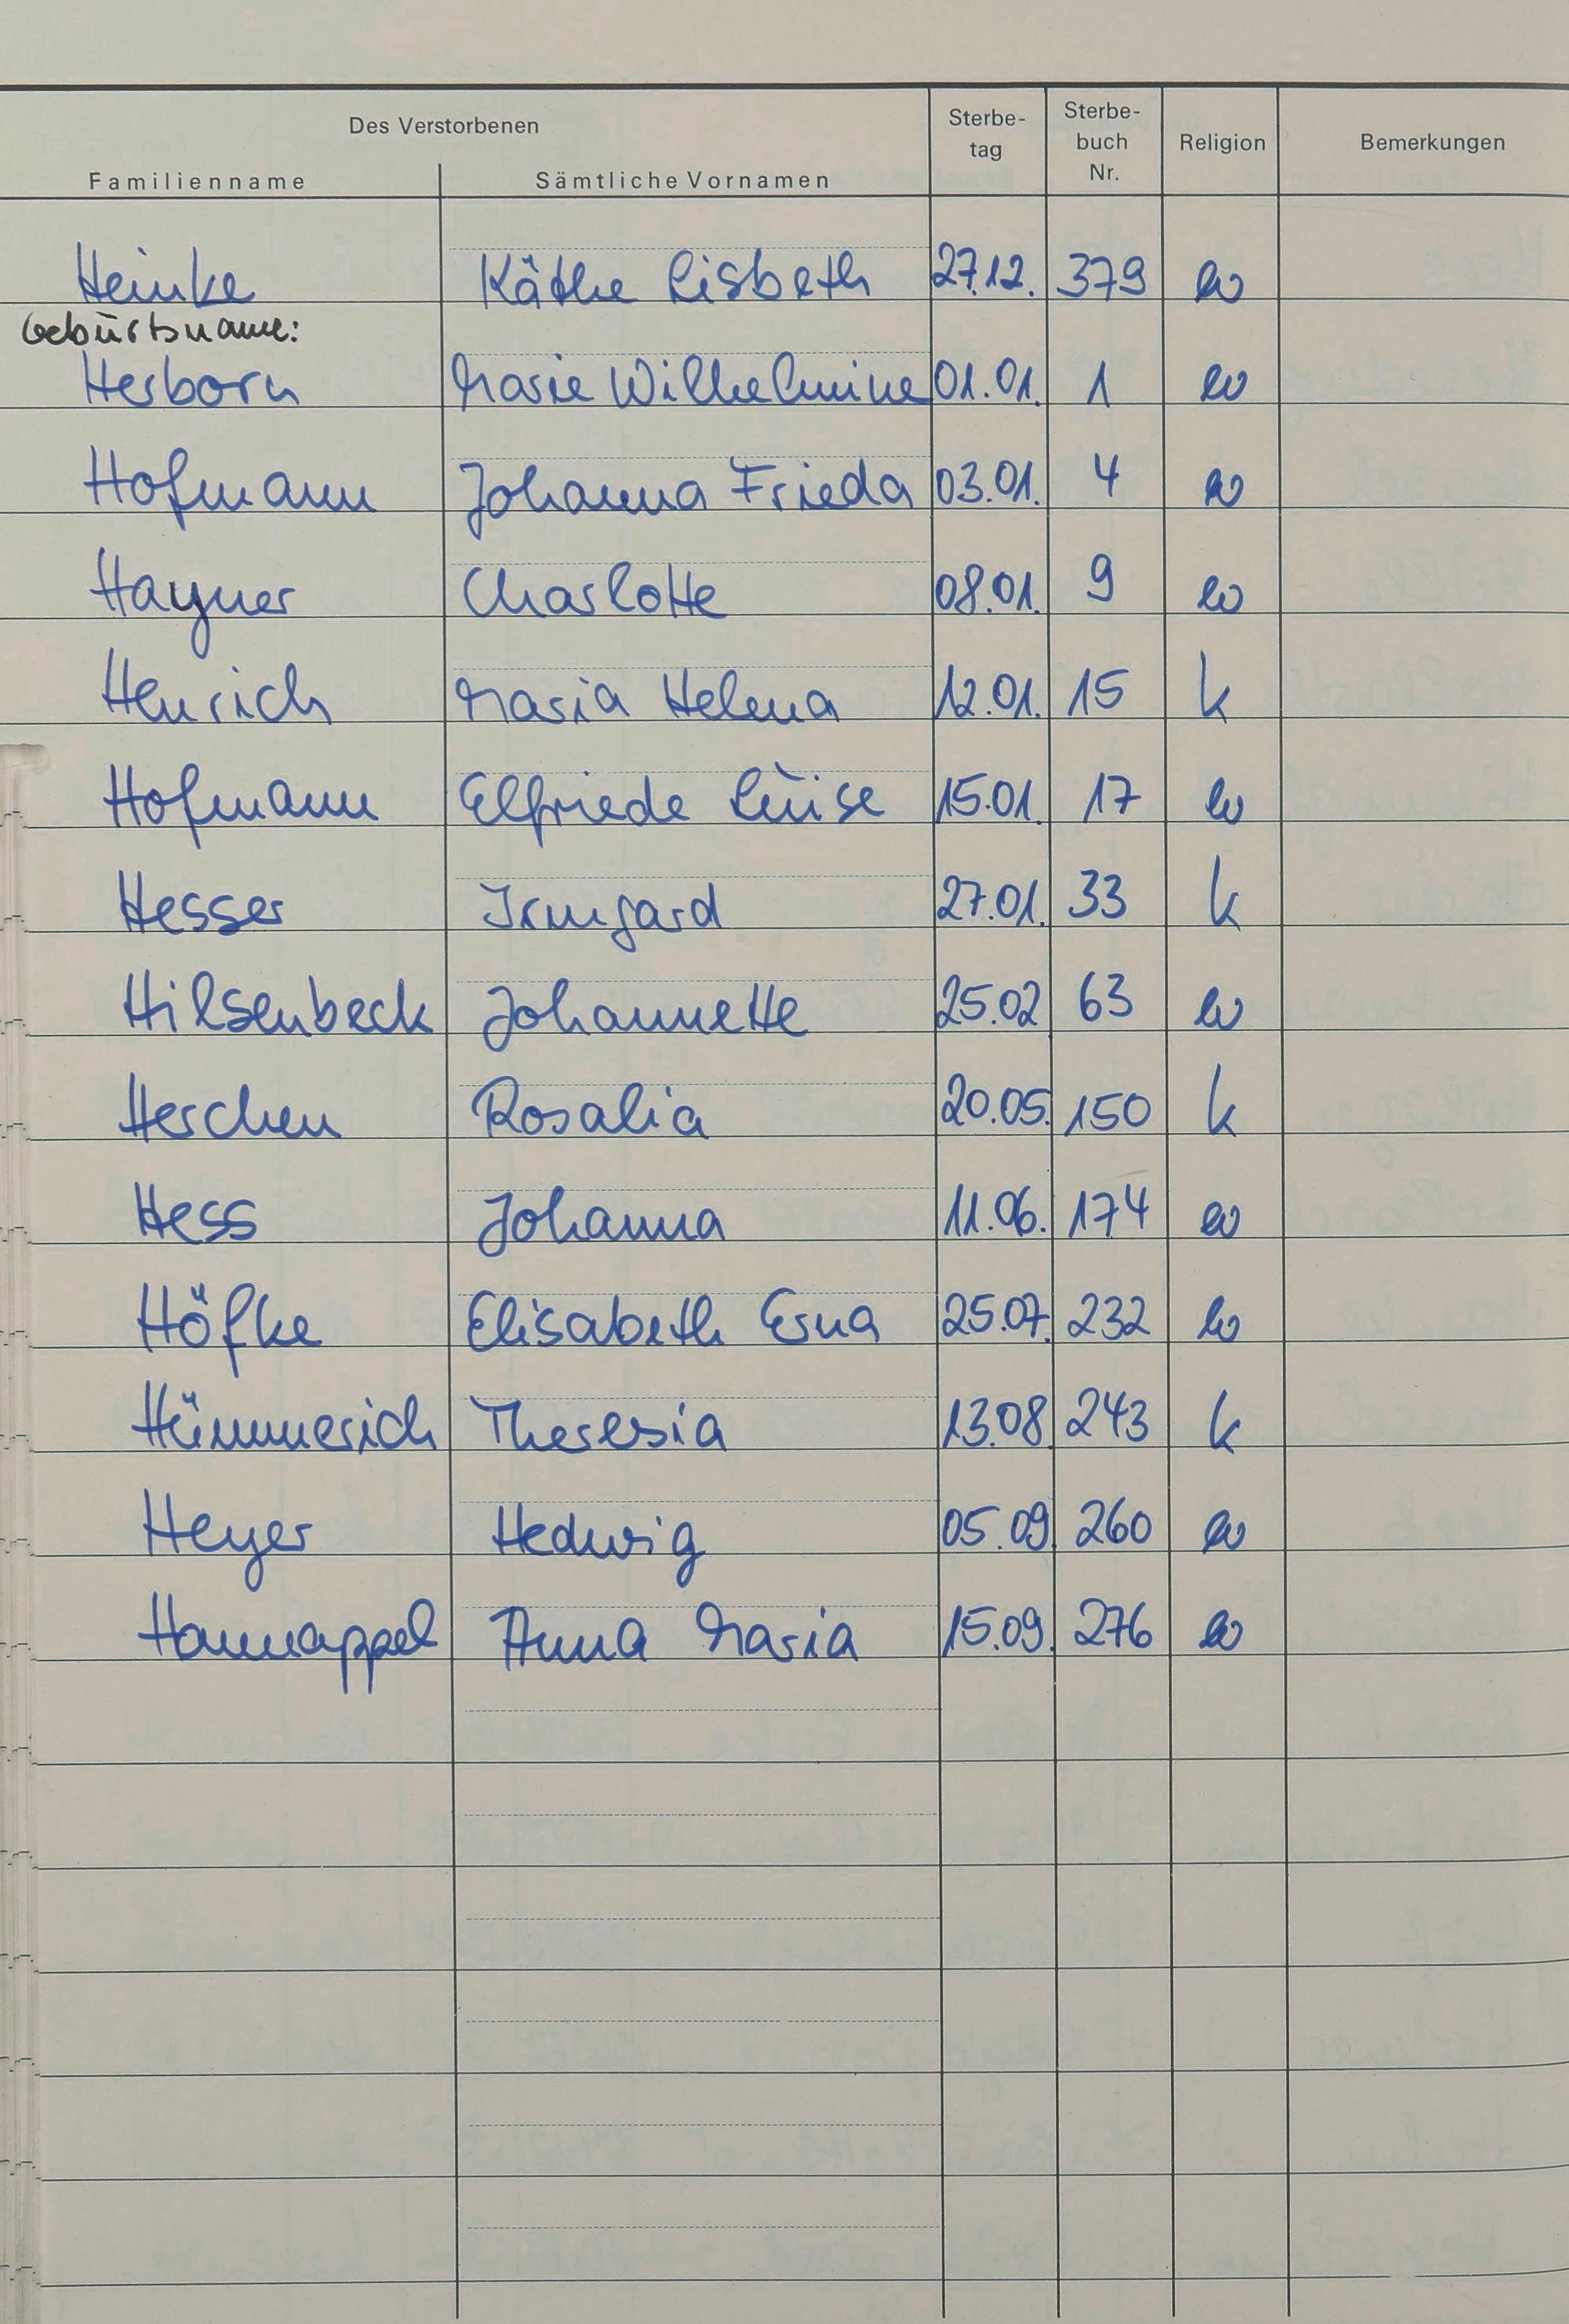 Des Verstorbenen
Familienname Sämtliche Vornamen Sterbe-tag Sterbe-buch Nr. Religion Bemerkungen
Heinke Käthe Lisbeth 27.12. 379 ev
Geburtsname:
Herborn Marie Wilhelmine 01.01. 1 ev
Hofmann Johanna Frieda 03.01. 4 ev
Hayner Charlotte 08.01. 9 ev
Henrich Maria Helena 12.01. 15 k
Hofmann Elfriede Luise 15.01. 17 ev
Hesser Irmgard 27.01. 33 k
Hilsenbeck Johannette 25.02 63 ev
Herchen Rosalia 20.05. 150 k
Hess Johanna 11.06. 174 ev
Höfke Elisabeth Erna 25.07. 232 ev
Hümmerich Theresia 13.08. 243 k
Heyer Hedwig 05.09. 260 ev
Hannappel Anna Maria 15.09. 276 ev